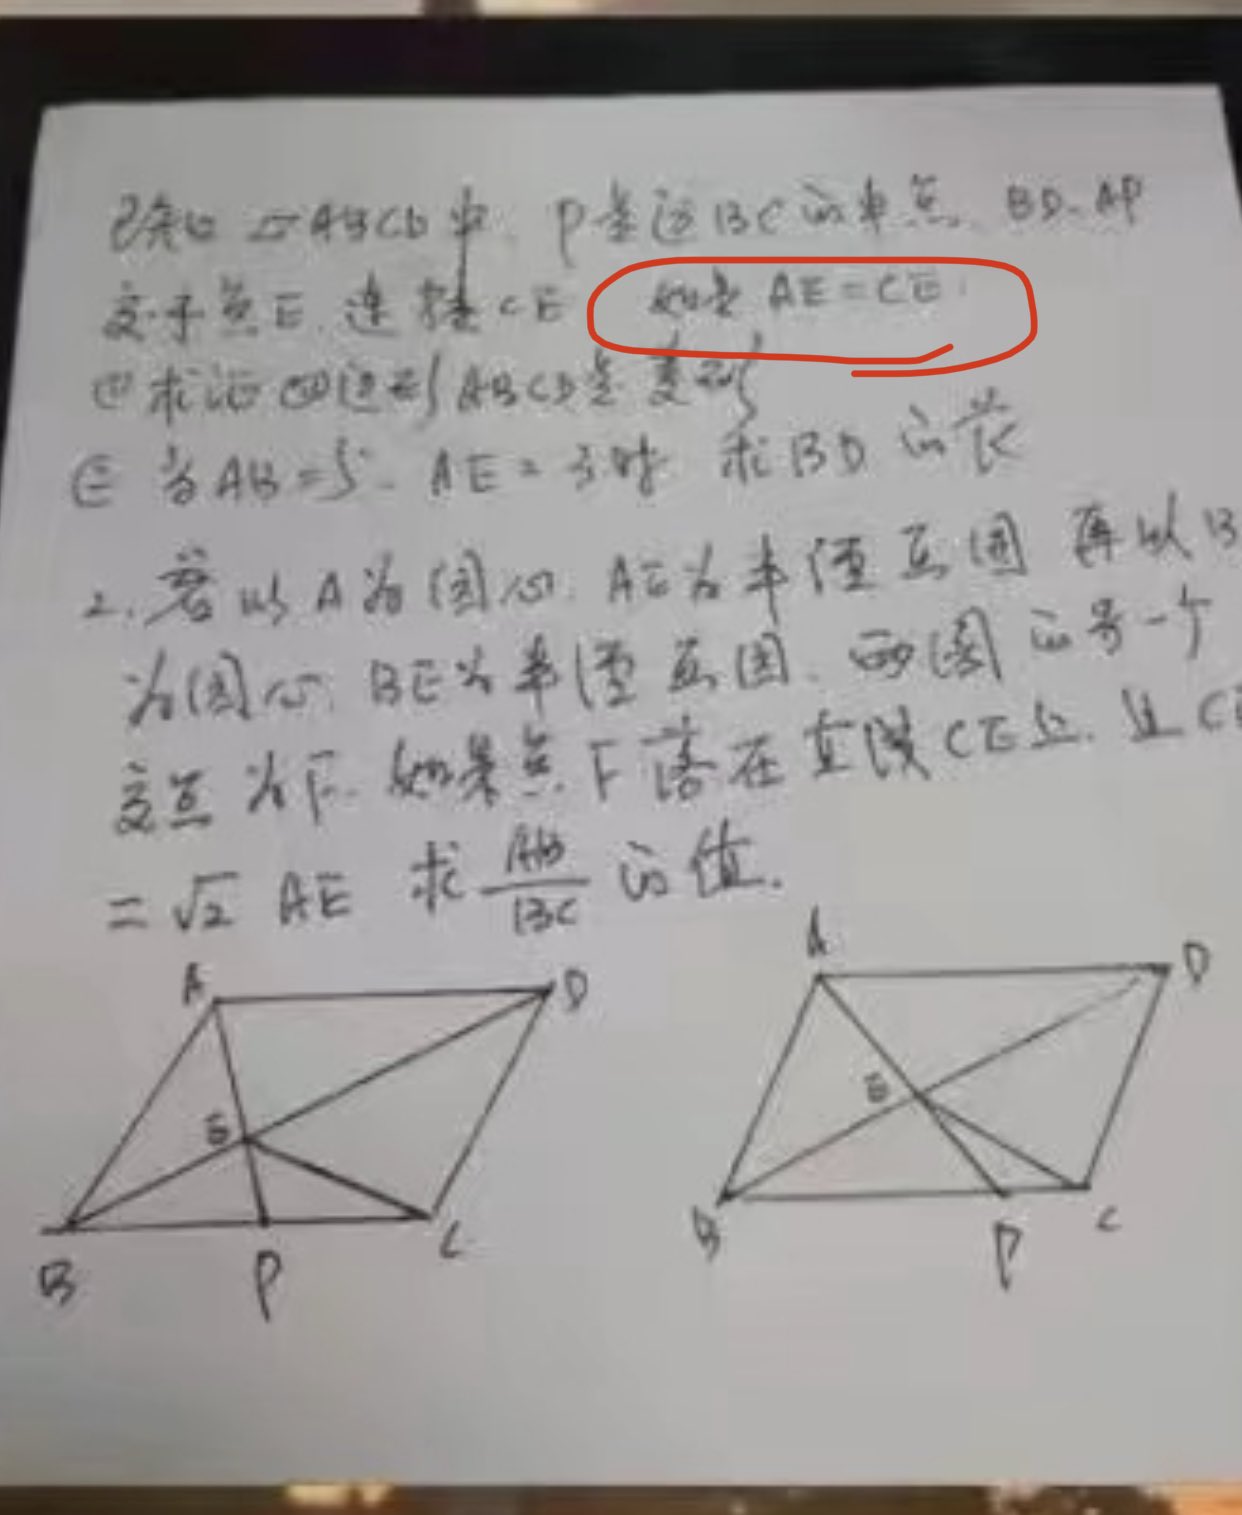 已知▱ABCD中, P是边BC的中点, BD、AP
交于点E, 连接CE 如果 AE=CE.
① 求证四边形ABCD是菱形
② 当AB=5. AE=3时 求BD的长
2. 若以A为圆心. AE为半径画圆 再以B
为圆心, BE为半径画圆. 两圆的另一个
交点为F. 如果点F落在直线CE上. 且CE
= √2 AE 求 AB/BC 的值.
A D A D
E E
B P C B P C